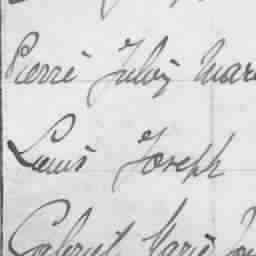 Pierre Julien Marie
Louis Joseph
Gabriel Marie